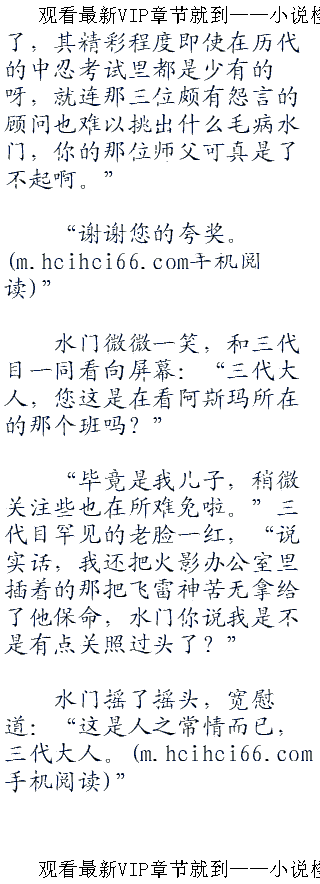 观看最新VIP章节就到——小说
了，其精彩程度即使在历代
的中忍考试里都是少有的
呀，就连那三位颇有怨言的
顾问也难以挑出什么毛病水
门，你的那位师父可真是了
不起啊。”
“谢谢您的夸奖。
(m.hcihci66.com手机阅
读)”
水门微微一笑，和三代
目一同看向屏幕：“三代大
人，您这是在看阿斯玛所在
的那个班吗？”
“毕竟是我儿子，稍微
关注些也在所难免啦。”三
代目罕见的老脸一红，“说
实话，我还把火影办公室里
插着的那把飞雷神苦无拿给
了他保命，水门你说我是不
是有点关照过头了？”
水门摇了摇头，宽慰
道：“这是人之常情而已，
三代大人。(m.hcihci66.com
手机阅读)”
观看最新VIP章节就到——小说